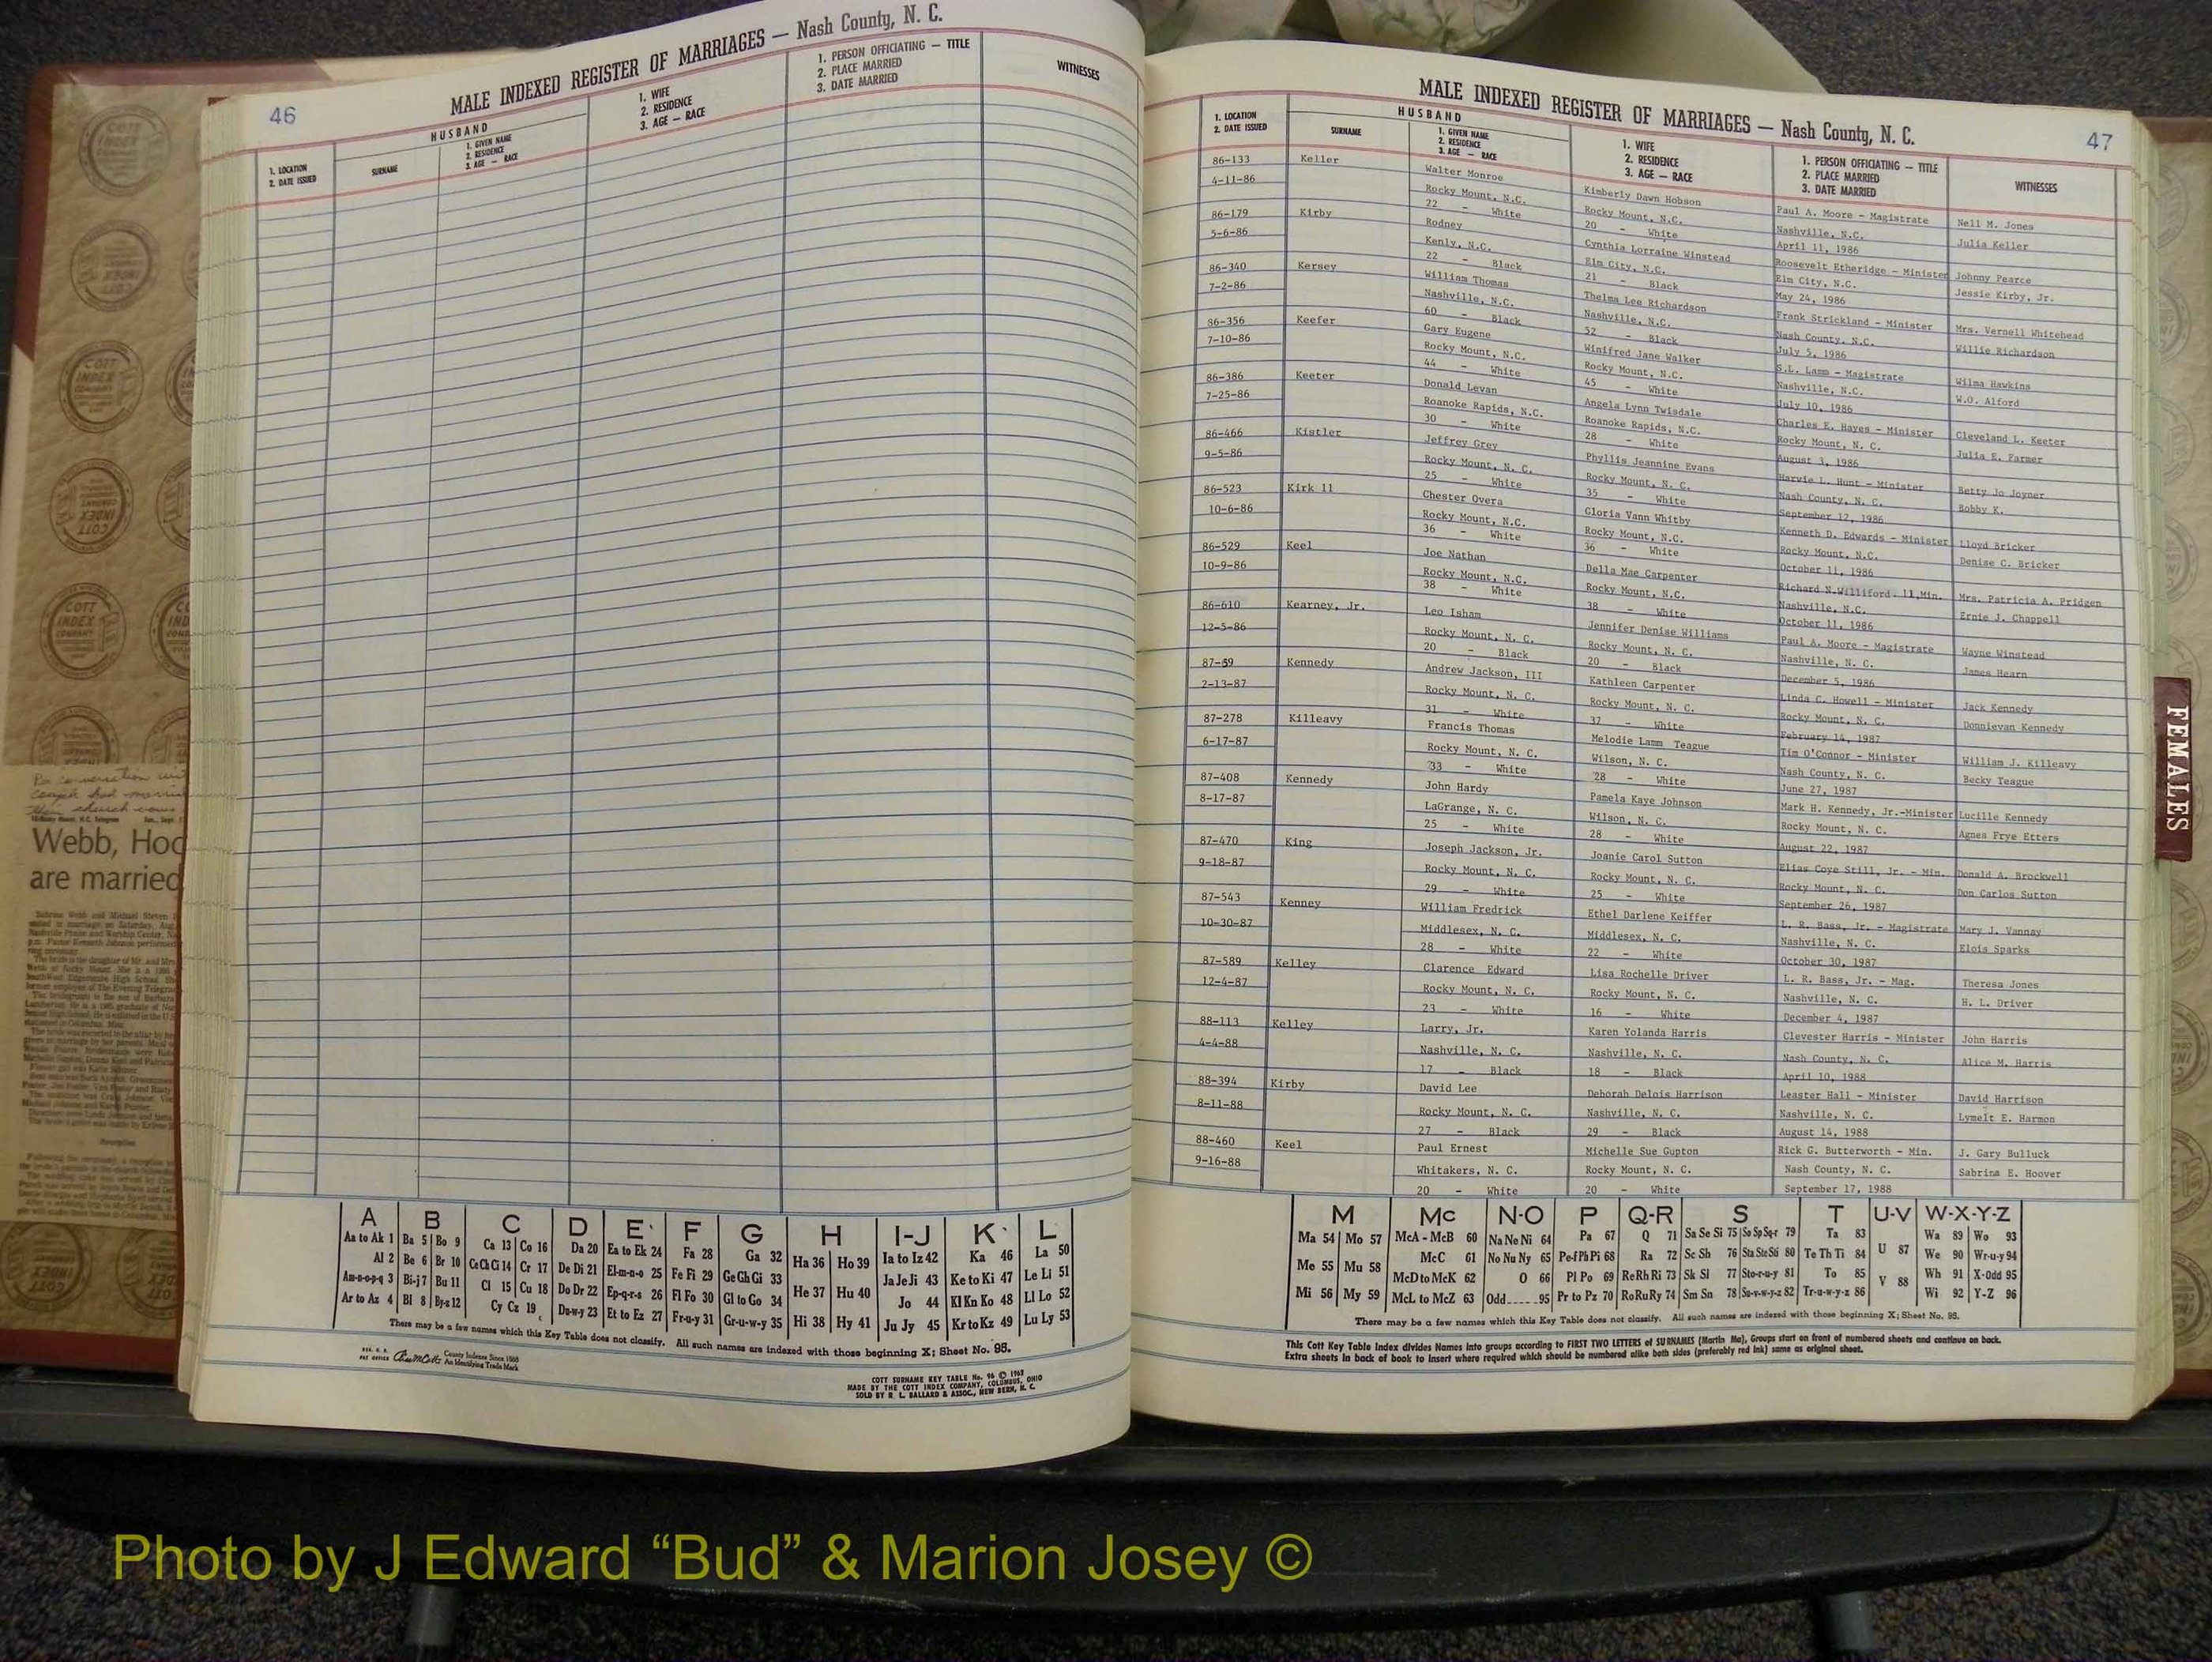 46
MALE INDEXED REGISTER OF MARRIAGES — Nash County, N. C.
1. LOCATION
2. DATE ISSUED
HUSBAND
SURNAME
1. GIVEN NAME
2. RESIDENCE
3. AGE — RACE
1. WIFE
2. RESIDENCE
3. AGE — RACE
1. PERSON OFFICIATING — TITLE
2. PLACE MARRIED
3. DATE MARRIED
WITNESSES
Webb, Hoo
are married
A B C D E F G H I-J K L
Aa to Ak 1 Ba 5 Bo 9 Ca 13 Co 16 Da 20 Ea to Ek 24 Fa 28 Ga 32 Ha 36 Ho 39 Ia to Iz 42 Ka 46 La 50
Al 2 Be 6 Br 10 Ce Ch Ci 14 Cr 17 De Di 21 El-m-n-o 25 Fe Fi 29 Ge Gh Gi 33 He 37 Hu 40 Ja Je Ji 43 Ke to Ki 47 Le Li 51
Am-n-o-p-q 3 Bi-j 7 Bu 11 Cl 15 Cu 18 Do Dr 22 Ep-q-r-s 26 Fl Fo 30 Gl to Go 34 Hi 38 Hy 41 Jo 44 Kl Kn Ko 48 Ll Lo 52
Ar to Az 4 Bl 8 By-z 12 Cy Cz 19 Du-w-y 23 Et to Ez 27 Fr-u-y 31 Gr-u-w-y 35 Ju Jy 45 Kr to Kz 49 Lu Ly 53
There may be a few names which this Key Table does not classify. All such names are indexed with those beginning X; Sheet No. 95.
County Indexes Since 1888
An Identifying Trade Mark
COTT SURNAME KEY TABLE No. 96 © 1962
MADE BY THE COTT INDEX COMPANY, COLUMBUS, OHIO
SOLD BY R. L. BALLARD & ASSOC., NEW BERN, N. C.
MALE INDEXED REGISTER OF MARRIAGES — Nash County, N. C.
47
1. LOCATION
2. DATE ISSUED
HUSBAND
SURNAME
1. GIVEN NAME
2. RESIDENCE
3. AGE — RACE
1. WIFE
2. RESIDENCE
3. AGE — RACE
1. PERSON OFFICIATING — TITLE
2. PLACE MARRIED
3. DATE MARRIED
WITNESSES
86-133 Keller Walter Monroe Kimberly Dawn Hobson Paul A. Moore - Magistrate Nell M. Jones
4-11-86 Rocky Mount, N.C. Rocky Mount, N.C. Nashville, N.C. Julia Keller
22 - White 20 - White April 11, 1986
86-179 Kirby Rodney Cynthia Lorraine Winstead Roosevelt Etheridge - Minister Johnny Pearce
5-6-86 Kenly, N.C. Elm City, N.C. Elm City, N.C. Jessie Kirby, Jr.
22 - Black 21 - Black May 24, 1986
86-340 Kersey William Thomas Thelma Lee Richardson Frank Strickland - Minister Mrs. Vernell Whitehead
7-2-86 Nashville, N.C. Nashville, N.C. Nash County, N.C. Willie Richardson
60 - Black 52 - Black July 5, 1986
86-356 Keefer Gary Eugene Winifred Jane Walker S.L. Lamm - Magistrate Wilma Hawkins
7-10-86 Rocky Mount, N.C. Rocky Mount, N.C. Nashville, N.C. W.O. Alford
44 - White 45 - White July 10, 1986
86-386 Keeter Donald Levan Angela Lynn Twisdale Charles E. Hayes - Minister Cleveland L. Keeter
7-25-86 Roanoke Rapids, N.C. Roanoke Rapids, N.C. Rocky Mount, N. C. Julia E. Farmer
30 - White 28 - White August 3, 1986
86-466 Kistler Jeffrey Grey Phyllis Jeannine Evans Harvie L. Hunt - Minister Betty Jo Joyner
9-5-86 Rocky Mount, N. C. Rocky Mount, N. C. Nash County, N. C. Bobby K.
25 - White 35 - White September 12, 1986
86-523 Kirk 11 Chester Overa Gloria Vann Whitby Kenneth D. Edwards - Minister Lloyd Bricker
10-6-86 Rocky Mount, N.C. Rocky Mount, N.C. Rocky Mount, N.C. Denise C. Bricker
36 - White 36 - White October 11, 1986
86-529 Keel Joe Nathan Della Mae Carpenter Richard N.Williford- 11,Min. Mrs. Patricia A. Pridgen
10-9-86 Rocky Mount, N.C. Rocky Mount, N.C. Nashville, N.C. Ernie J. Chappell
38 - White 38 - White October 11, 1986
86-610 Kearney, Jr. Leo Isham Jennifer Denise Williams Paul A. Moore - Magistrate Wayne Winstead
12-5-86 Rocky Mount, N. C. Rocky Mount, N. C. Nashville, N. C. James Hearn
20 - Black 20 - Black December 5, 1986
87-59 Kennedy Andrew Jackson, III Kathleen Carpenter Linda C. Howell - Minister Jack Kennedy
2-13-87 Rocky Mount, N. C. Rocky Mount, N. C. Rocky Mount, N. C. Donnievan Kennedy
31 - White 37 - White February 14, 1987
87-278 Killeavy Francis Thomas Melodie Lamm Teague Tim O'Connor - Minister William J. Killeavy
6-17-87 Rocky Mount, N. C. Wilson, N. C. Nash County, N. C. Becky Teague
33 - White 28 - White June 27, 1987
87-408 Kennedy John Hardy Pamela Kaye Johnson Mark H. Kennedy, Jr.-Minister Lucille Kennedy
8-17-87 LaGrange, N. C. Wilson, N. C. Rocky Mount, N. C. Agnes Frye Etters
25 - White 28 - White August 22, 1987
87-470 King Joseph Jackson, Jr. Joanie Carol Sutton Elias Coye Still, Jr. - Min. Donald A. Brockwell
9-18-87 Rocky Mount, N. C. Rocky Mount, N. C. Rocky Mount, N. C. Don Carlos Sutton
29 - White 25 - White September 26, 1987
87-543 Kenney William Fredrick Ethel Darlene Keiffer L. R. Bass, Jr. - Magistrate Mary J. Vannay
10-30-87 Middlesex, N. C. Middlesex, N. C. Nashville, N. C. Elois Sparks
28 - White 22 - White October 30, 1987
87-589 Kelley Clarence Edward Lisa Rochelle Driver L. R. Bass, Jr. - Mag. Theresa Jones
12-4-87 Rocky Mount, N. C. Rocky Mount, N. C. Nashville, N. C. H. L. Driver
23 - White 16 - White December 4, 1987
88-113 Kelley Larry, Jr. Karen Yolanda Harris Clevester Harris - Minister John Harris
4-4-88 Nashville, N. C. Nashville, N. C. Nash County, N. C. Alice M. Harris
17 - Black 18 - Black April 10, 1988
88-394 Kirby David Lee Deborah Delois Harrison Leaster Hall - Minister David Harrison
8-11-88 Rocky Mount, N. C. Nashville, N. C. Nashville, N. C. Lymelt E. Harmon
27 - Black 29 - Black August 14, 1988
88-460 Keel Paul Ernest Michelle Sue Gupton Rick G. Butterworth - Min. J. Gary Bulluck
9-16-88 Whitakers, N. C. Rocky Mount, N. C. Nash County, N. C. Sabrina E. Hoover
20 - White 20 - White September 17, 1988
M Mc N-O P Q-R S T U-V W-X-Y-Z
Ma 54 Mo 57 McA - McB 60 Na Ne Ni 64 Pa 67 Q 71 Sa Se Si 75 So Sp Sq-r 79 Ta 83 U 87 Wa 89 Wo 93
Me 55 Mu 58 McC 61 No Nu Ny 65 Pe-f Ph Pi 68 Ra 72 Sc Sh 76 Sta Ste Sti 80 Te Th Ti 84 V 88 We 90 Wr-u-y 94
Mi 56 My 59 McD to McK 62 O 66 Pl Po 69 Re Rh Ri 73 Sk Sl 77 Sto-r-u-y 81 To 85 Wh 91 X-Odd 95
McL to McZ 63 Odd.....95 Pr to Pz 70 Ro Ru Ry 74 Sm Sn 78 Su-v-w-y-z 82 Tr-u-w-y-z 86 Wi 92 Y-Z 96
There may be a few names which this Key Table does not classify. All such names are indexed with those beginning X; Sheet No. 95.
This Cott Key Table Index divides Names into groups according to FIRST TWO LETTERS of SURNAMES (Martin Ma), Groups start on front of numbered sheets and continue on back.
Extra sheets in back of book to insert where required which should be numbered alike both sides (preferably red ink) same as original sheet.
FEMALES
Photo by J Edward “Bud” & Marion Josey ©